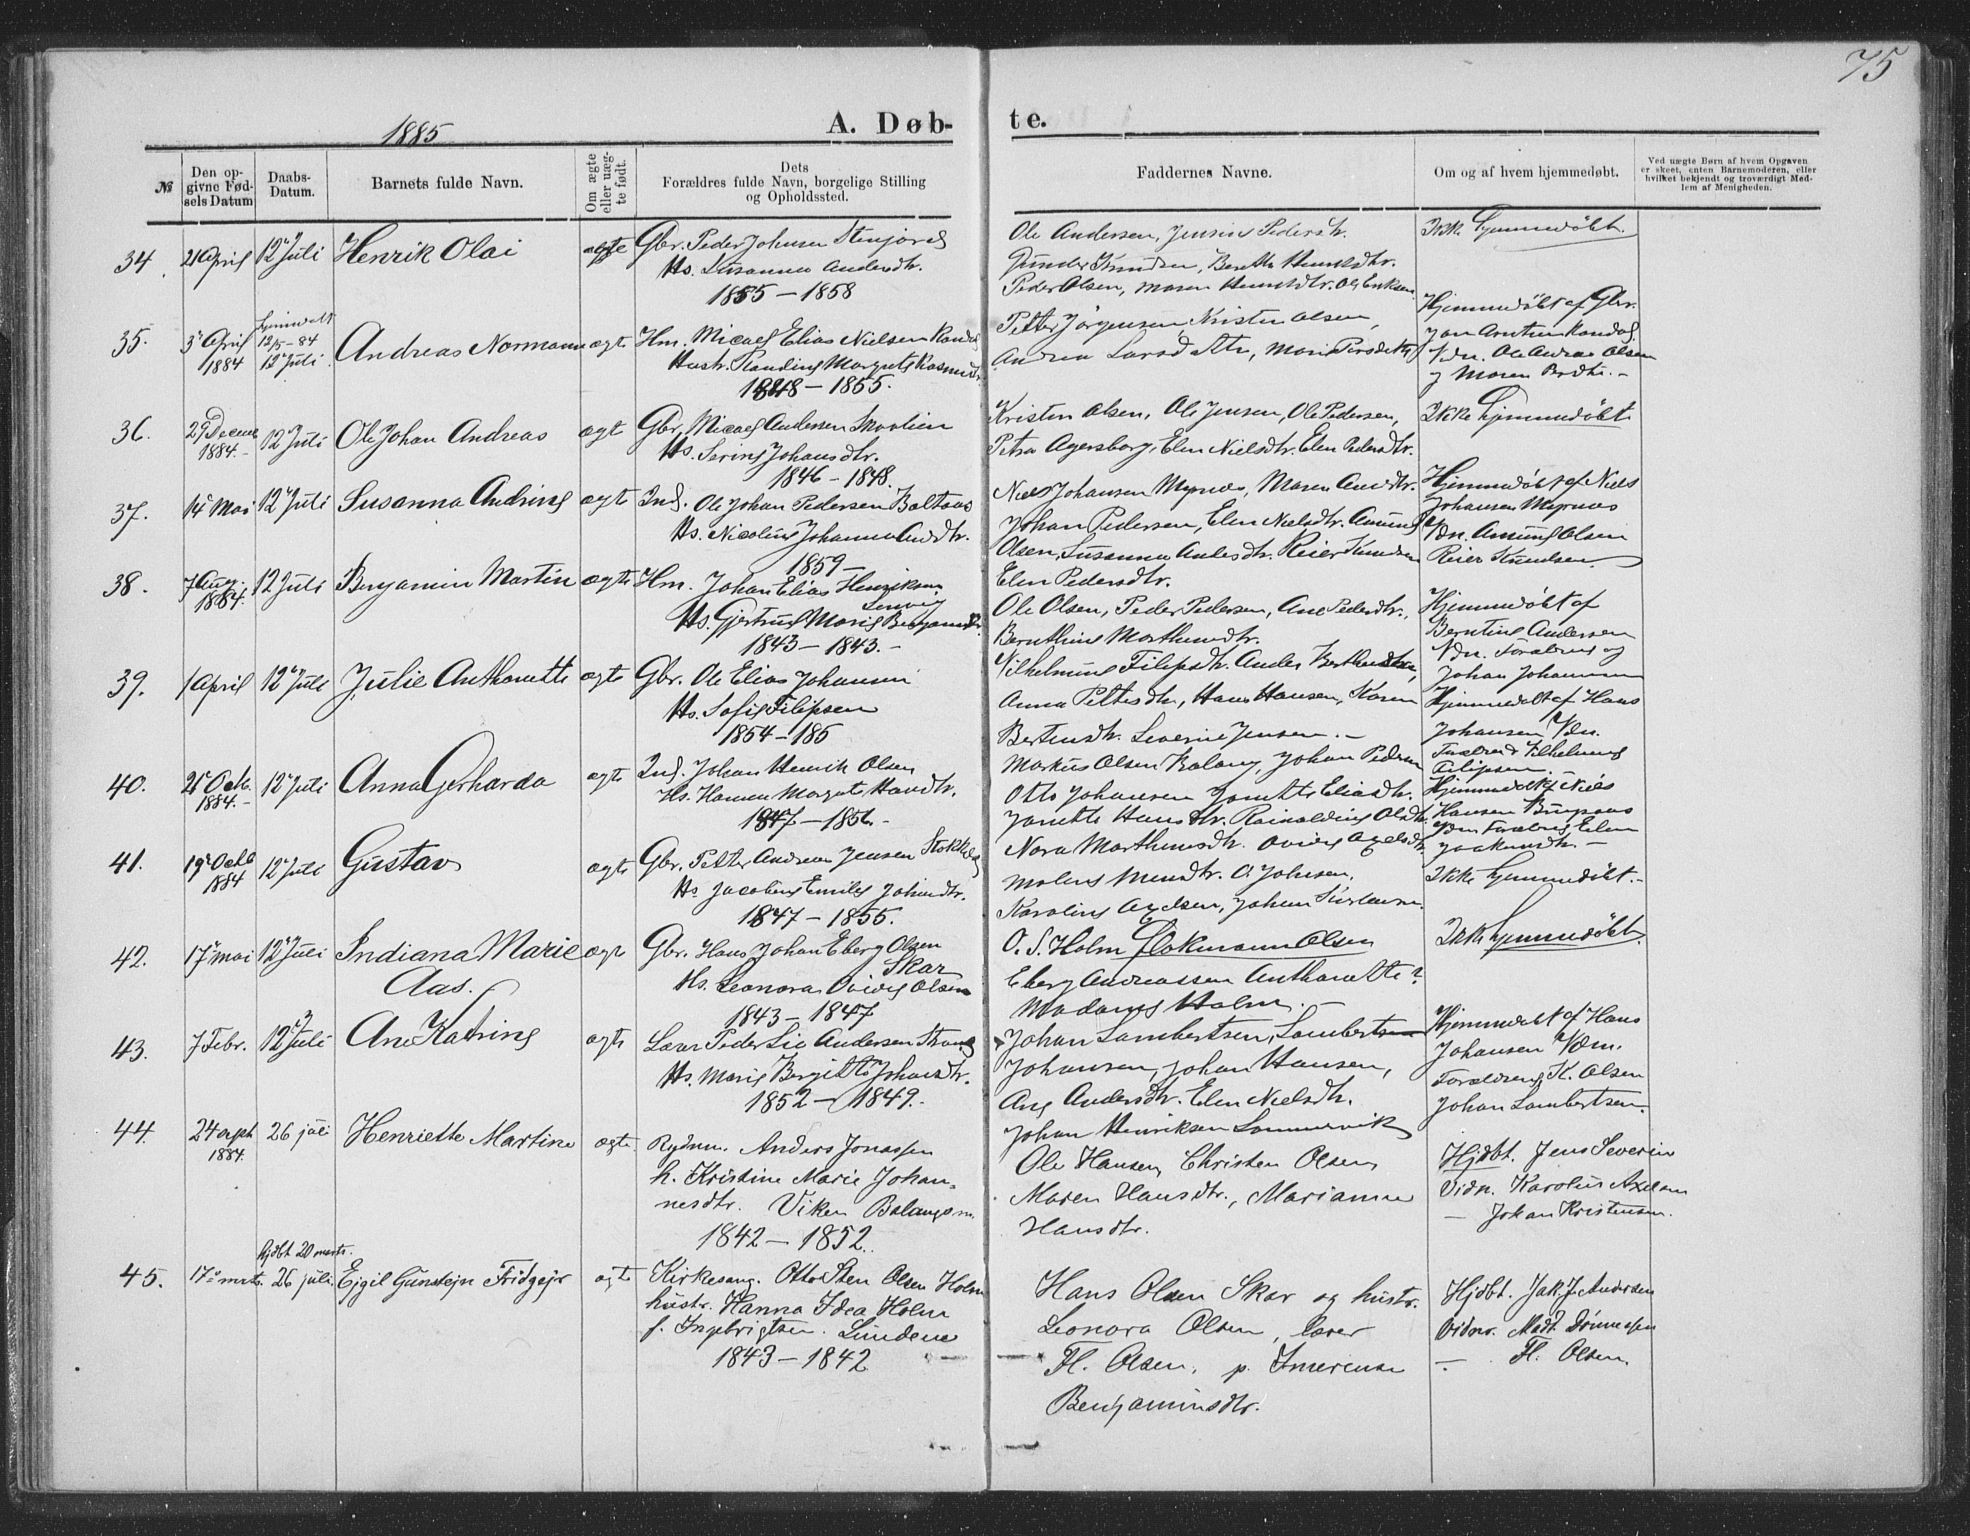 75
1885
A. Døb-
te.
№
Den op-
givne Fød-
sels Datum
Daabs-
Datum.
Barnets fulde Navn.
Om ægte
eller uæg-
te født.
Dets
Forældres fulde Navn, borgelige Stilling
og Opholdssted.
Faddernes Navne.
Om og af hvem hjemmedøbt.
Ved uægte Børn af hvem Opgaven
er skeet, enten Barnemoderen, eller
hvilket bekjendt og troværdigt Med-
lem af Menigheden.
34.
21 April
12 Juli
Henrik Olai
ægte
Gbr. Peder Johnsen
Hs. Susanna Andersdtr.
1855 – 1858
Ole Andersen, Jensine Pedersdtr.
Gunder Knudsen, Berethe Henriksdtr.
Peder Olsen, Maren Henriksdtr. Ole Eriksen
Ikke hjemmedøbt.
35.
3 April
1884
12/5 – 84
12 Juli
Andreas Normann
ægte
Hm. Micael Elias Nielsen
Hustr. Margrete Rasmusdtr.
1848 – 1855.
Petter Jørgensen, Kristen Olsen,
Andrea Larsdtr,
Hjemmedøbt af Gbr.
Vdn. Ole Andreas Olsen
36.
29 Decem
1884.–
12 Juli
Ole Johan Andreas
ægt
Gbr. Micael Andersen
Hs. Serine Johansdtr.
1846 – 1848.
Kristen Olsen, Ole Jensen, Ole Pedersen,
Petra Agersborg, Elen Nielsdtr. Elen Pedersdtr.
Ikke hjemmedøbt
37.
14 Mai
12 Juli
Susanna Andrine
ægte
Ind. Ole Johan Pedersen Baltaas
Hs. Nicoline Johanna
1859 –
Niels Johansen Myrnes, Maren
Johan Pedersen, Elen Nielsdtr. Amund
Olsen, Susanna Reier Knudsen
Elen Pedersdtr.
Hjemmedøbt af Niels
Johansen Myrnes
Vdn. Amund Olsen
Reier Knudsen
38.
7 Aug.
1884.
12 Juli
Benjamin Martin
ægte
Hm. Johan Elias Henriksen
Lenvig
Hs. Gjertrud Marie
1843 – 1843.–
Ole Olsen, Peder Pedersen, Ane Pedersdtr.
Hjemmedøbt af
Berntine Andersen
Vdn. Forældrene og
Johan Johannesen
39.
1 April
12 Juli
Julie Anthonette
ægte
Gbr. Ole Elias Johansen
Hs. Sofie Filipsen
1854 – 185
Vilhelmine Filipsdtr.
Anna Hans Hansen, Karen
Severine Jensen. –
Hjemmedøbt af Hans
Johansen Vdn.
Filipsen.
40.
21 Octb.
1884.–
12 Juli
Anna Gerharda
ægte
Ind. Johan Henrik Olsen
Hs. Hanna Margrete Hansdtr.
1847 – 1856.–
Markus Olsen Johan Pedersen
Otto Johansen Eliasdtr.
Hansdtr.
Hjemmedøbt af Niels
Hansen
41.
19 Octb
1884
12 Juli
Gustav
ægte
Gbr. Petter Andreas Jensen
Hs. Jacobine Emilie
1847 – 1855.
Nora
Karoline Axelsen,
Ikke hjemmedøbt.–
42.
17 mai
12 Juli
Indiana Marie
Aas.
ægt
Gbr. Hans Johan Eberg Olsen
Skar
Hs. Leonora Ovidie Olsen
1843 – 1847
O. S. Holm Olsen
Eberg Andreassen Anthonette
Madame Holm. –
Ikke hjemmedøbt.
43.
7 Febr.
12 Juli
Ane Katrine
ægte
Peder Andersen
Hs. Marie Bergitte Johansdtr.
1852 – 1849.–
Johan Lambertsen, Lambertsen
Johansen, Johan Hansen,
Ane Andersdtr. Elen Nielsdtr.
Johan Henriksen Lommervik
Hjemmedøbt af Hans
Johansen Vdn.
Forældrene, K. Olsen
Johan Lambertsen.
44.
24 sept
1884.
26 juli
Henriette Martine
ægte
Rydnm. Anders Jonassen
h. Kristine Marie Johan-
nesdtr. Viken Balangsn.
1842 – 1852.
Ole Hansen, Christen Olsen,
Maren Hansdtr., Marianne
Hansdtr.
Hjdbt. Jens Severin
Vidn. Karolus Axelsen
– Johan Kristensen.
45.
17 marts.
Hjdbt 20 marts.
26 juli.
Ejgil Gunstejn Fridgejr
ægte
Kirkesang. Otto Sten Olsen Holm
hustr. Hanna Idea Holm
f. Ingebrigtsen. Lundene
1843 – 1842
Hans Olsen Skar og hustr.
Leonora Olsen, lærer
Fl. Olsen, p.
Benjaminsdtr.
Hjdbt. Jak. J. Andersen
Vidnr. Madt. Dønnessen
– Fl. Olsen.